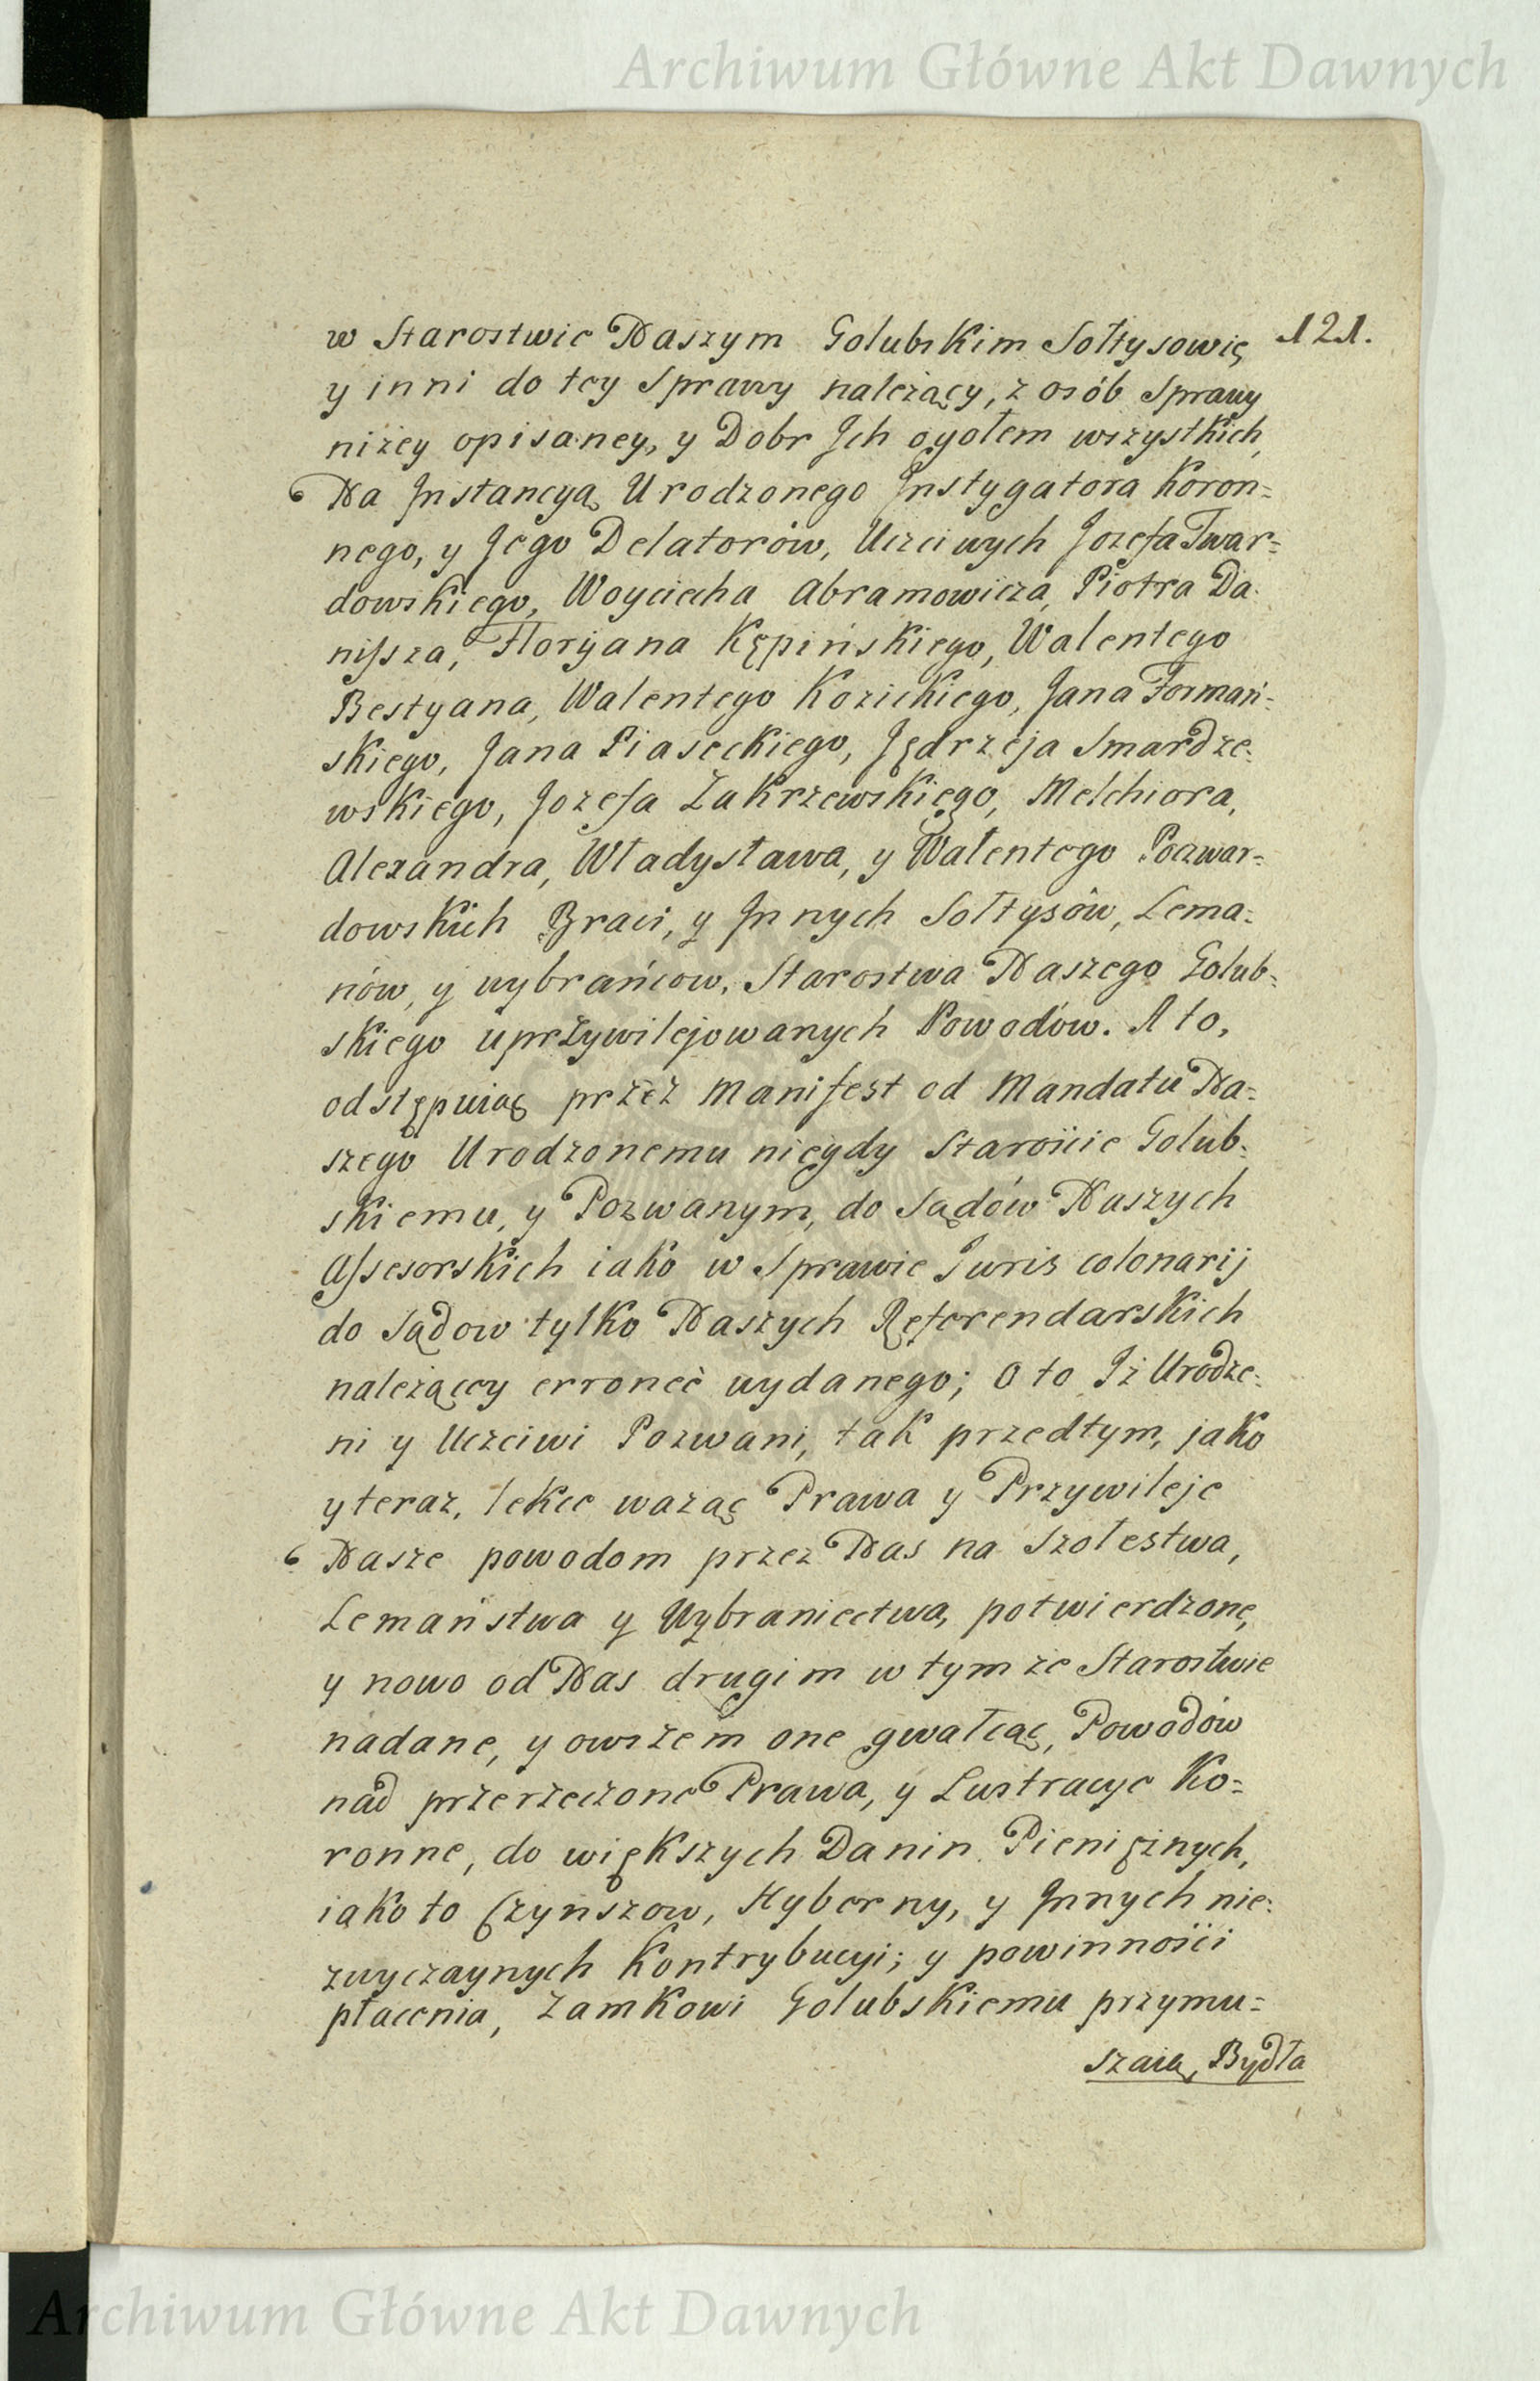 Archiwum Główne Akt Dawnych
121.
w Starostwie Naszym Golubskim Sołtysowie
y inni do tey Sprawy należący, z osób Sprawy
niżey opisaney, y Dobr Jch ogołem wszystkich,
Na Jnstancyą Urodzonego Jnstygatora Koron=
nego, y Jego Delatorów, Uczciwych Jozefa Twar=
dowskiego, Woyciecha Abramowicza, Piotra Da=
nissza, Floryana Kępińskiego, Walentego
Bestyana, Walentego Kozickiego, Jana Formań=
skiego, Jana Piaseckiego, Jędrzeja Smardze=
wskiego, Jozefa Zakrzewskiego, Melchiora,
Alexandra, Władysława, y Walentego Poczwar=
dowskich Braci, y Jnnych Sołtysów, Lema=
nów, y wybrańcow, Starostwa Naszego Golub=
skiego uprzywilejowanych Powodów. A to,
odstępuiąc przez Manifest od Mandatu Na=
szego Urodzonemu niegdy Staroście Golub=
skiemu, y Pozwanym, do Sądów Naszych
Assesorskich iako w Sprawie Juris colonarij
do Sądow tylko Naszych Referendarskich
należącey erroneè wydanego; O to Jż Urodze=
ni y Uczciwi Pozwani, tak przedtym, jako
y teraz, lekce ważąc Prawa y Przywileje
Nasze powodom przez Nas na Szołestwa,
Lemaństwa y Wybraniectwa, potwierdzone,
y nowo od Nas drugim w tymże Starostwie
nadane, y owszem one gwałcąc, Powodów
nad przerzeczone Prawa, y Lustracye Ko=
ronne, do większych Danin Pieniężnych,
iako to Czynszow, Hyberny, y Jnnych nie=
zwyczaynych Kontrybucyi; y powinności
płacenia, Zamkowi Golubskiemu przymu=
szaią, Bydła
Archiwum Główne Akt Dawnych